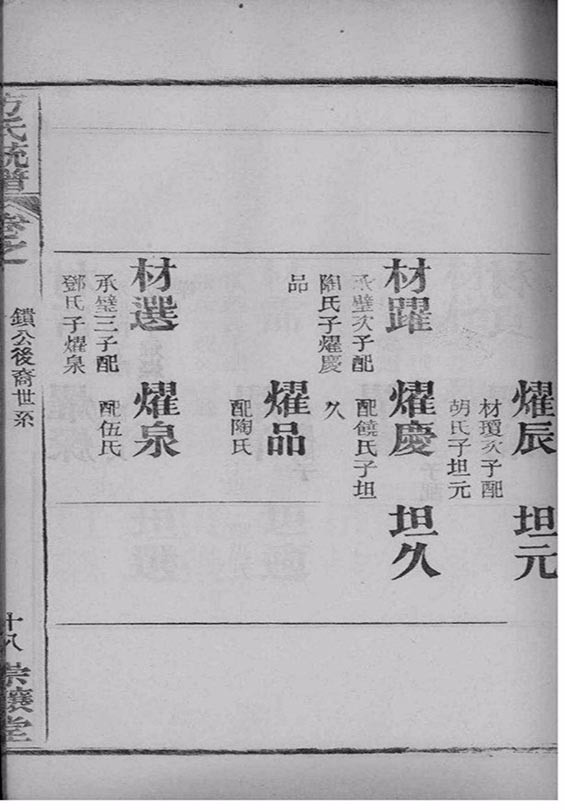 燿辰
材瓊次子配
胡氏子坦元
坦元
材躍
承璧次子配
陶氏子燿慶
品
燿慶
配饒氏子坦
久
坦久
燿品
配陶氏
材選
承璧三子配
鄧氏子燿泉
燿泉
配伍氏
方氏統譜
卷之
鎖公後裔世系
十八